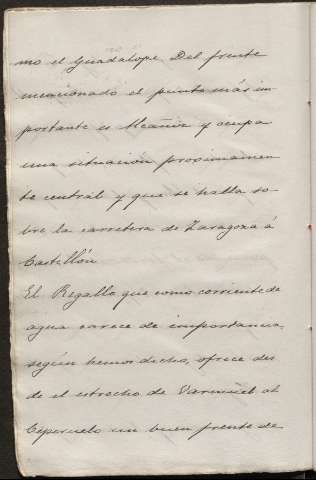 mo el Guadalope Del frente
mencionado el punto más im
portante es Alcañiz y ocupa
una situacion proximamen
te central y que se halla so
bre la carretera de Zaragoza á
Castellón
El Regallo que como corriente de
agua carece de importancia,
según hemos dicho, ofrece des
de el estrecho de al
un buen frente de